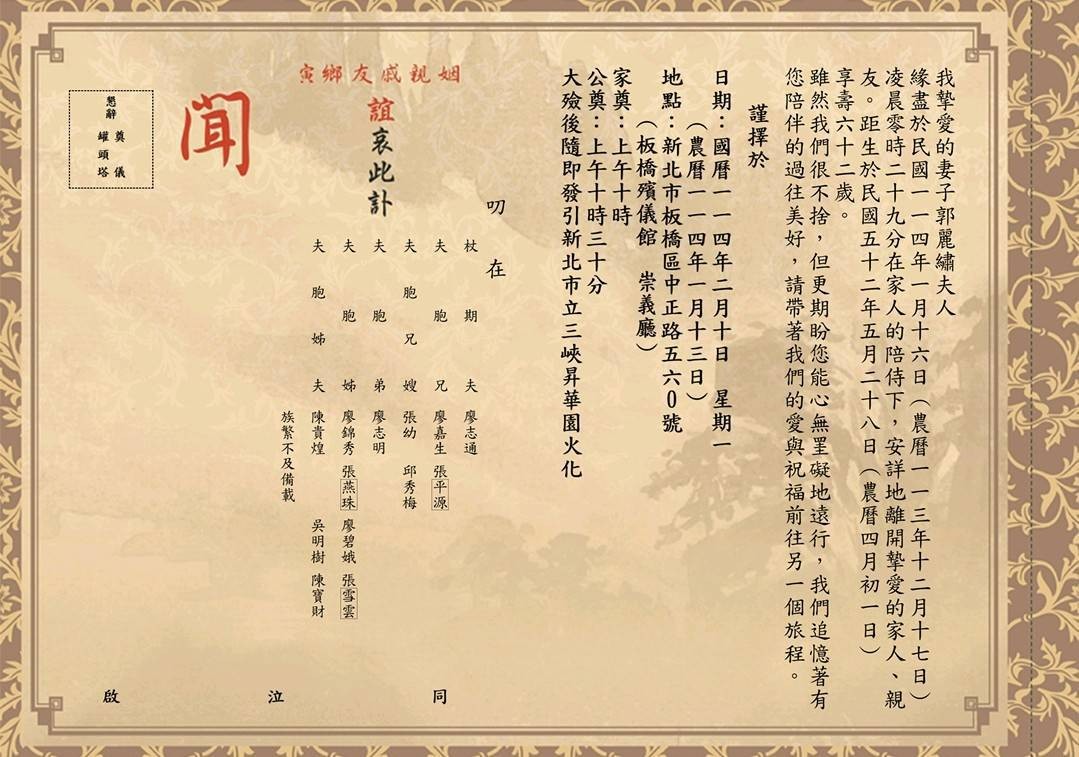 我摯愛的妻子郭麗繡夫人
緣盡於民國一一四年一月十六日(農曆一一三年十二月十七日)
凌晨零時二十九分在家人的陪侍下，安詳地離開摯愛的家人、親
友。距生於民國五十二年五月二十八日(農曆四月初一日)
享壽六十二歲。
雖然我們很不捨，但更期盼您能心無罣礙地遠行，我們追憶著有
您陪伴的過往美好，請帶著我們的愛與祝福前往另一個旅程。
謹擇於
日期：國曆一一四年二月十日 星期一
(農曆一一四年一月十三日)
地點：新北市板橋區中正路五六0號
(板橋殯儀館 崇義廳)
家奠：上午十時
公奠：上午十時三十分
大殮後隨即發引新北市立三峽昇華園火化
叨在
姻親戚友鄉寅
誼哀此訃
聞
杖期夫 廖志通
夫胞兄 廖嘉生 張平源
夫胞兄嫂 張幼 邱秀梅
夫胞弟 廖志明
夫胞姊 廖錦秀 張燕珠 廖碧娥 張雪雲
夫胞姊夫 陳貴煌 吳明樹 陳寶財
族繁不及備載
同泣啟
懇辭
奠儀
罐頭塔